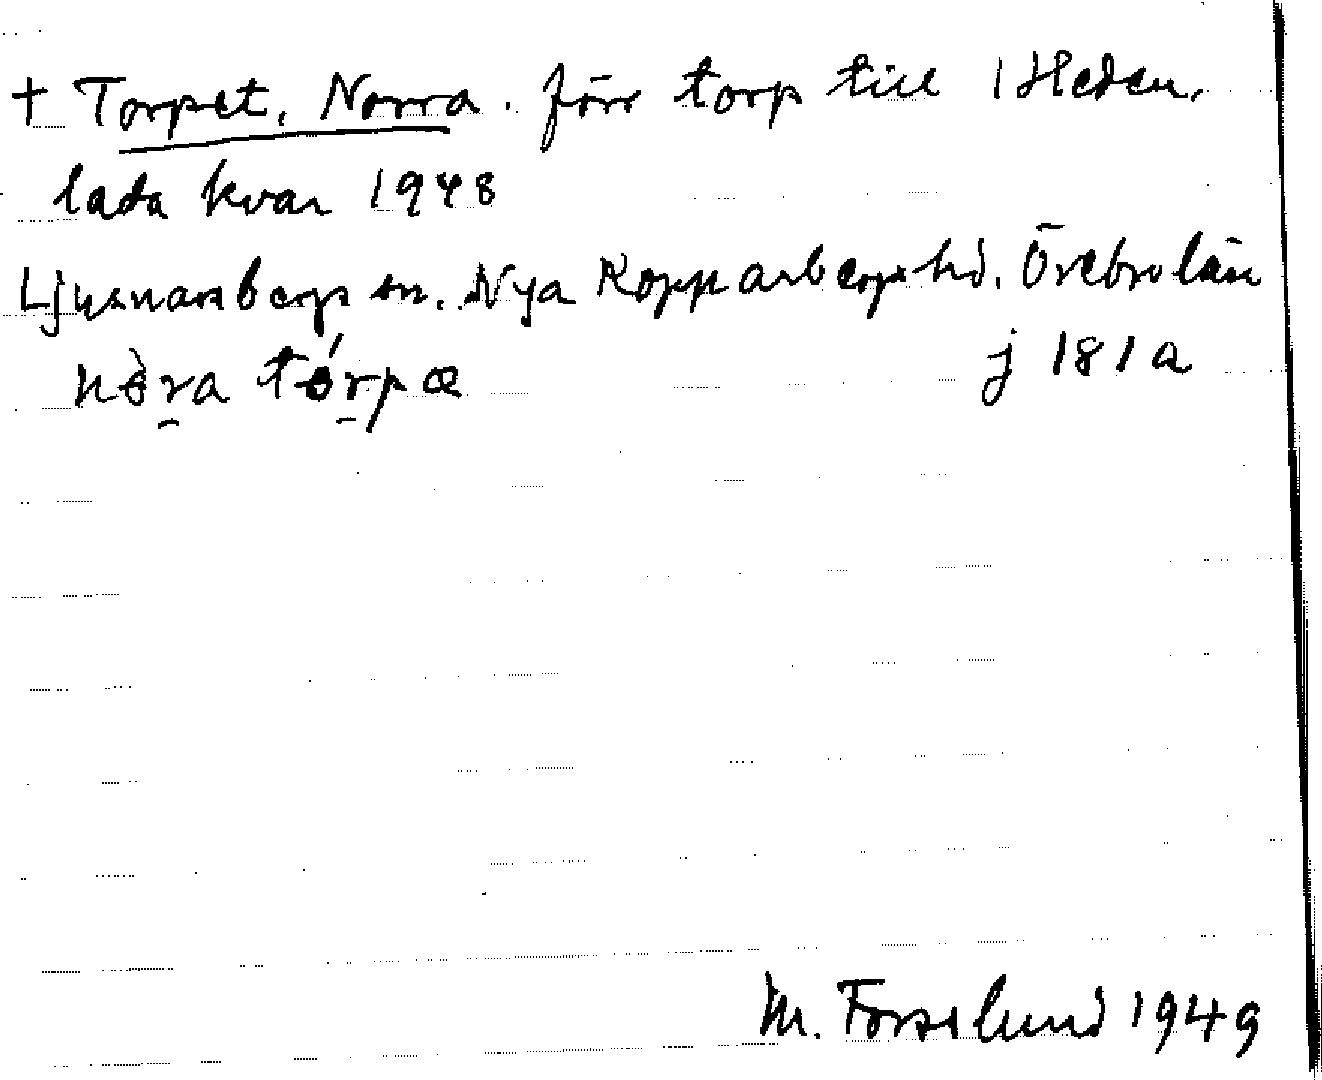 † Torpet, Norra. förr torp till 1 Heden,
lada kvar 1948
Ljusnarsbergs sn. Nya Kopparbergs hd. Örebro län
nòra tórpæ
j 181a
M. Forsslund 1949